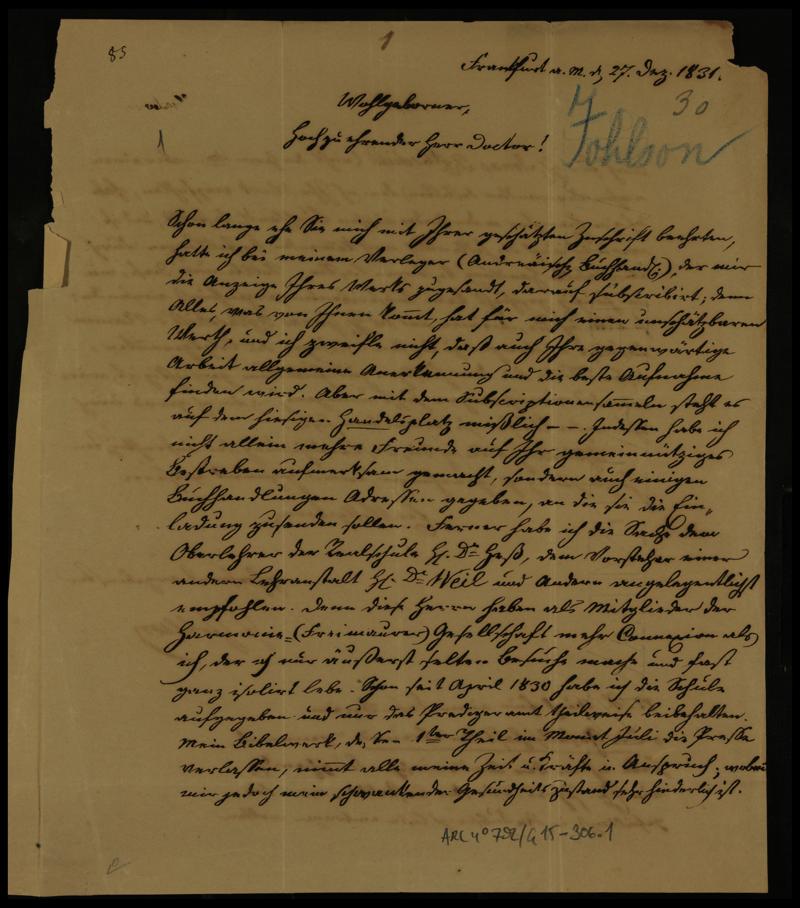 85
1
Frankfurt a. M. d. 27. Dez. 1831.
30
Johlson
Wohlgeborner,
1
Hochzuehrender Herr Doctor!
Schon lange ehe Sie mich mit Ihrer geschätzten Zuschrift beehrten,
hatte ich bei meinem Verleger (Andreäische Buchhandlg), der mir
die Anzeige Ihres Werks zugesandt, darauf subscribirt; denn
Alles, was von Ihnen kom̅t, hat für mich einen unschätzbaren
Werth, und ich zweifle nicht, daß auch Ihre gegenwärtige
Arbeit allgemeine Anerkennung und die beste Aufnahme
finden wird. Aber mit dem Subscriptionensam̅eln steht es
auf dem hiesigen Handelsplatz mißlich – –. Indessen habe ich
nicht allein mehre Freunde auf Ihr gemeinnütziges
Bestreben aufmerksam gemacht, sondern auch einigen
Buchhandlungen Adressen gegeben, an die sie die Ein„
ladung zusenden sollen. Ferner habe ich die Sache dem
Oberlehrer der Realschule H. Dr Heß, dem Vorsteher einer
andern Lehranstalt H. Dr Weil und Andern angelegentlichst
empfohlen. Denn diese Herrn haben als Mitglieder der
Harmonie=(Freimaurer) Gesellschaft mehr Connexion als
ich, der ich nur äußerst selten Besuche mache und fast
ganz isolirt lebe. Schon seit April 1830 habe ich die Schule
aufgegeben und nur das Predigeramt theilweise beibehalten.
Mein Bibelwerk, 1ter Theil im Monat Juli die Presse
verlassen, nim̅t alle meine Zeit u. Kräfte in Anspruch; wobei
mir jedoch mein schwankender Gesundheitszustand sehr hinderlich ist.
ARC 4° 792/G 15-306.1